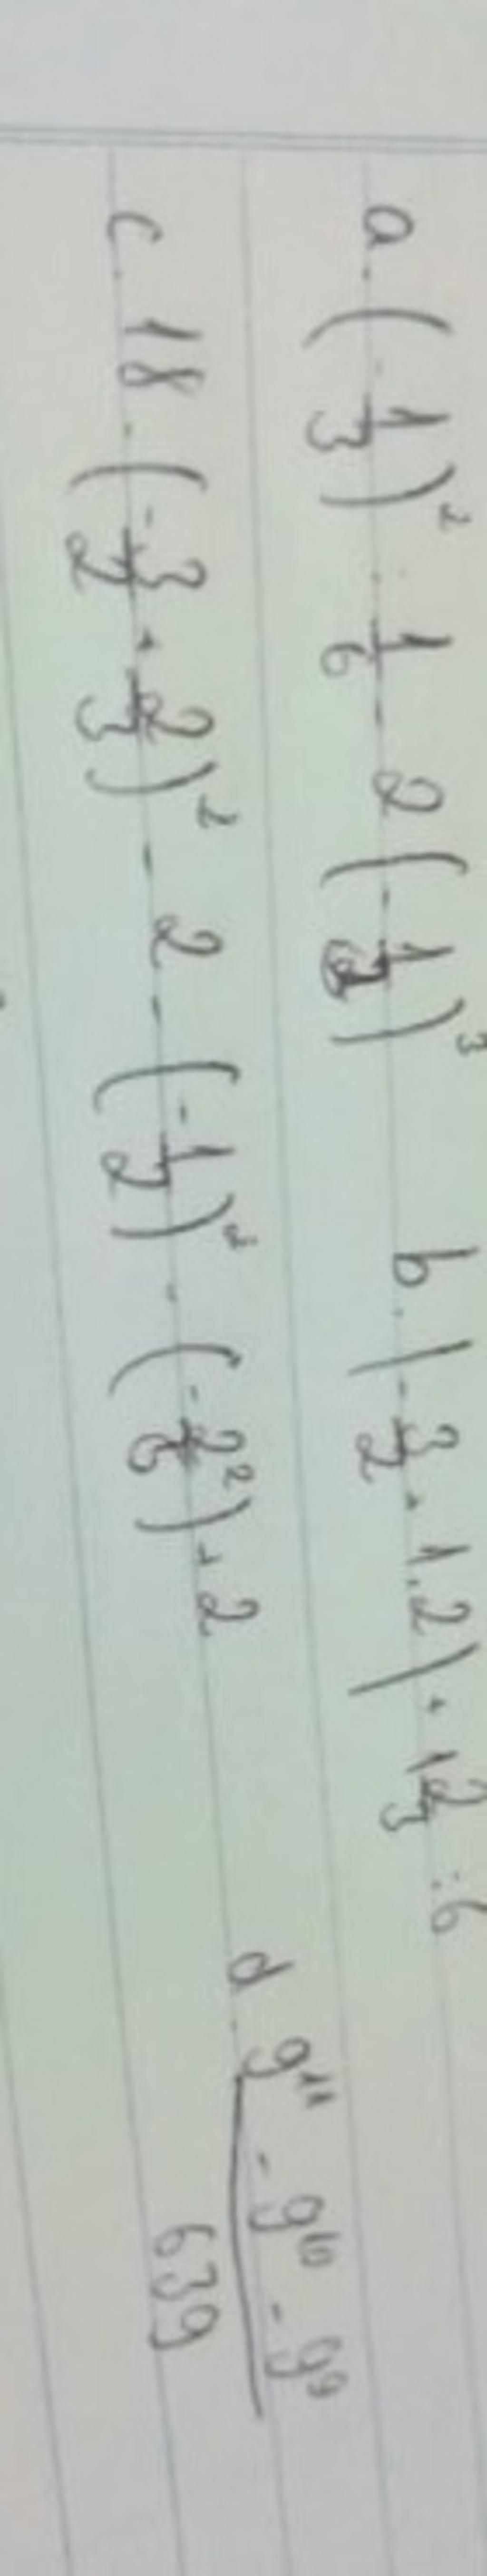 a. (-1/3)² : 1/6 - 2(-1/2)³ b. |-3/2 + 1,2| + 1 2/3 : 6
c. 18 . (-3/2 + 2/3)² - 2 - (-1/2)² - (-2²/6) + 2 d. (9¹¹ - 9¹⁰ - 9⁹)/639